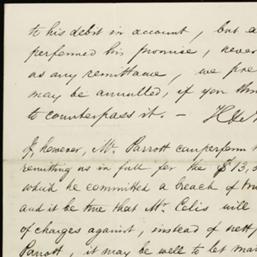 to his debit in account, but a
performed his promise, never
as any remittance, we pre
may be annulled, if you thin
to counterpass it. —
If, however, Mr. Parrott can perform h
remitting us in full for the $13,5
which he committed a breach of tru
and it be true that Mr. Celis will
of charges against, instead of nett
Parrott, it may be well to let ma